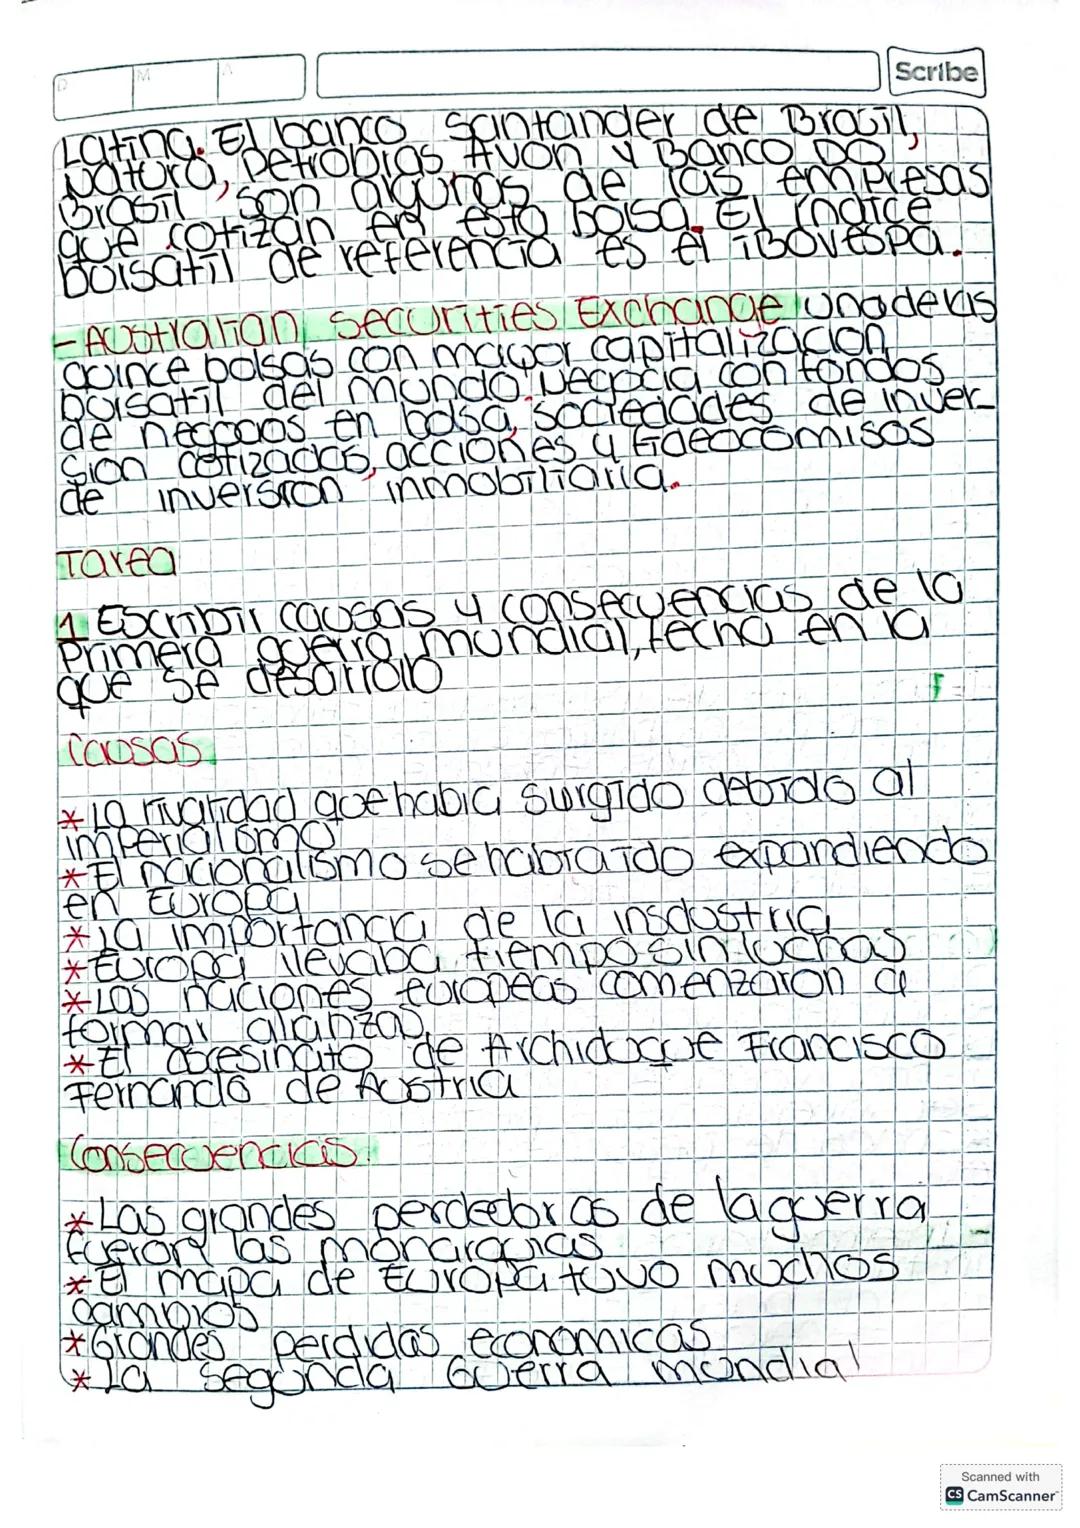 D M A
Scribe
Latina. El banco Santander de Brasil,
Natura, Petrobras Avon y Banco DO
Brasil, son algunas de las empresas
que cotizan en esta bolsa. El índice
bolsatil de referencia es el iBovespa.
- Australian Securities Exchange una de las
quince bolsas con mayor capitalización
bursatil del mundo. Negocia con fondos
de negocios en bolsa, sociedades de inver-
sion cotizadas, acciones y fideocomisos
de inversion inmobiliaria.
Tarea
1 Escribir causas y consecuencias de la
Primera guerra mundial, fecha en la
que se desarrolo
Causas
* La rivalidad que habia surgido debido al
imperialismo
* El nacionalismo se habia ido expandiendo
en Europa
* La importancia de la insdustria
* Europa llevaba tiempo sin luchas
* Las naciones europeas comenzaron a
formar alianzas.
* El asesinato de Archiduque Francisco
Fernando de Austria
Consecuencias:
* Las grandes perdedoras de la guerra
fueron las monarquias
* El mapa de Europa tuvo muchos
cambios
* Grandes perdidas economicas
* La segunda Guerra mundial
Scanned with
CS CamScanner